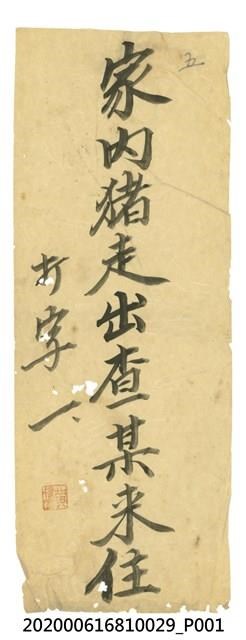 五
家內豬走出查某來住
打字一
202000616810029_P001